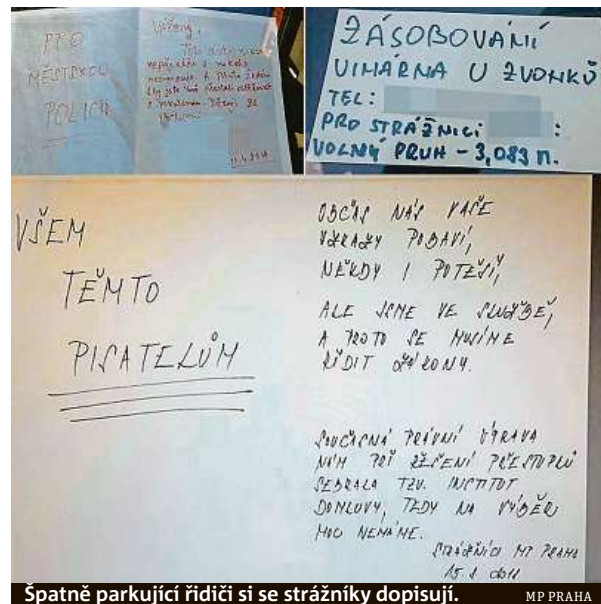 PRO
MĚSTSKOU
POLICII
Vážený,
11.4.2018
ZÁSOBOVÁNÍ
VINÁRNA U ZVONKŮ
TEL:
PRO STRÁŽNICI :
VOLNÝ PRUH - 3,083 m.
VŠEM
TĚMTO
PISATELŮM
OBČAS NÁS VAŠE
VZKAZY POBAVÍ,
NĚKDY I POTĚŠÍ,
ALE JSME VE SLUŽBĚ,
A PROTO SE MUSÍME
ŘÍDIT ZÁKONY.
SOUČASNÁ PRÁVNÍ ÚPRAVA
NÁM PŘI ŘEŠENÍ PŘESTUPKŮ
SEBRALA TZV. INSTITUT
DOMLUVY, TEDY NA VÝBĚR
MOC NEMÁME.
STRÁŽNÍCI MP PRAHA
Špatně parkující řidiči si se strážníky dopisují.
MP PRAHA